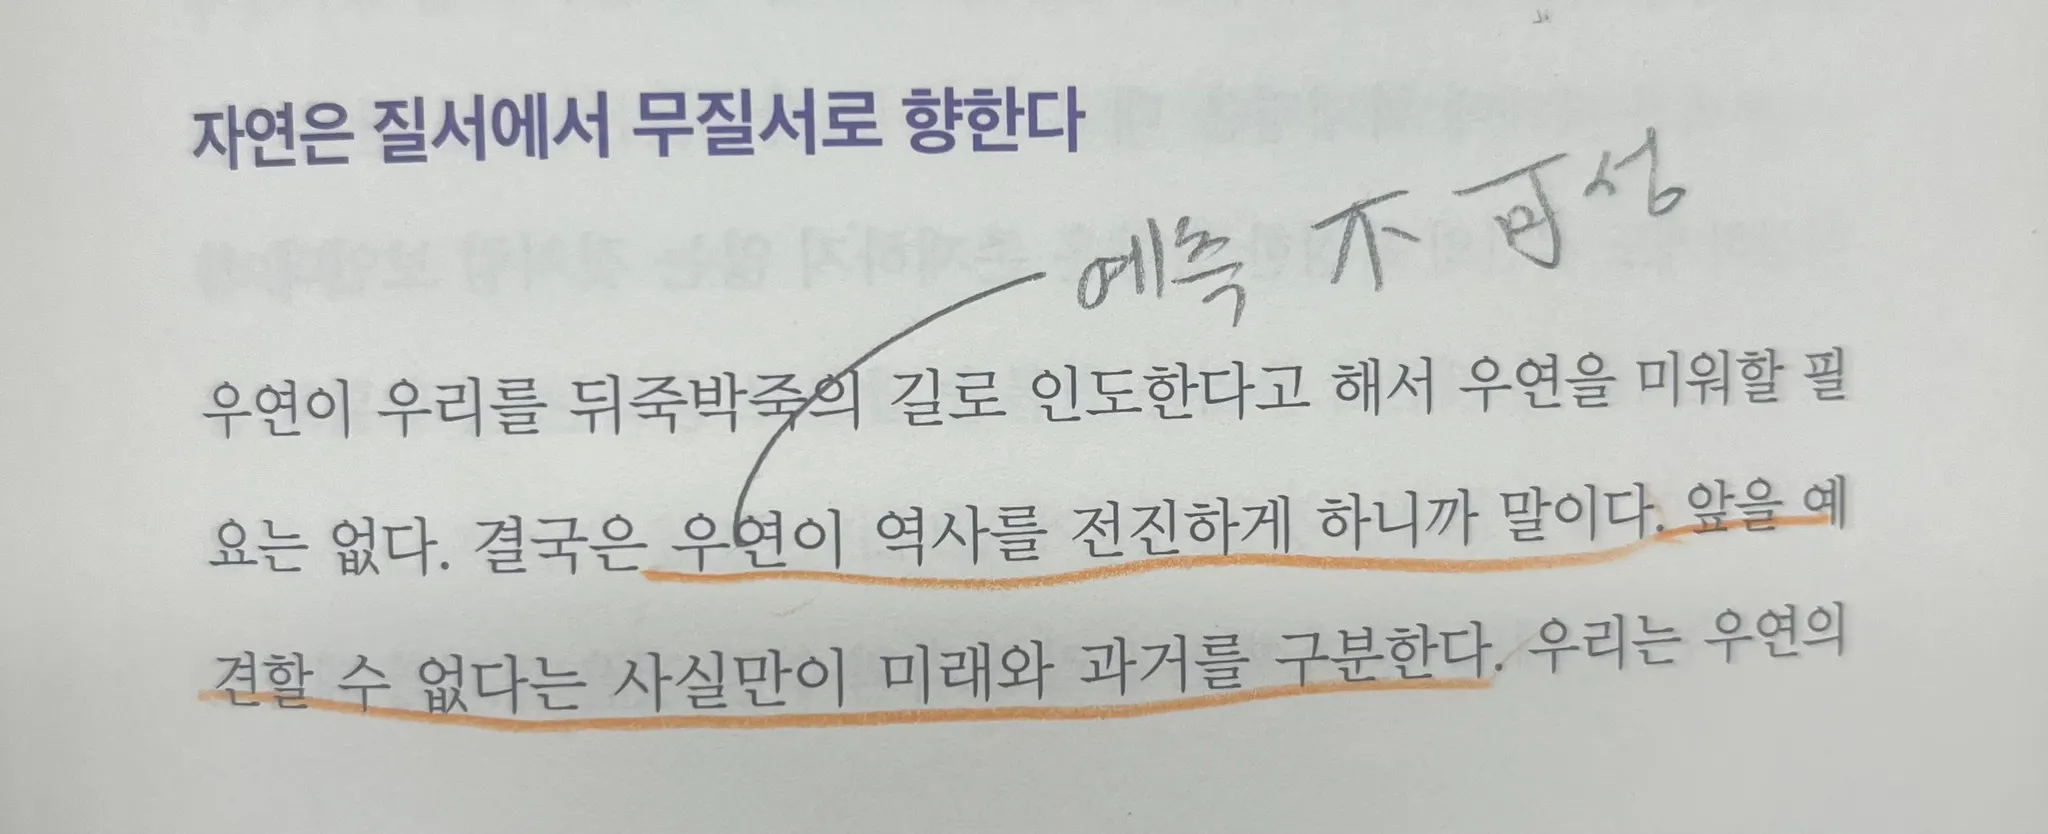 자연은 질서에서 무질서로 향한다
예측 不可성
우연이 우리를 뒤죽박죽의 길로 인도한다고 해서 우연을 미워할 필
요는 없다. 결국은 우연이 역사를 전진하게 하니까 말이다. 앞을 예
견할 수 없다는 사실만이 미래와 과거를 구분한다. 우리는 우연의